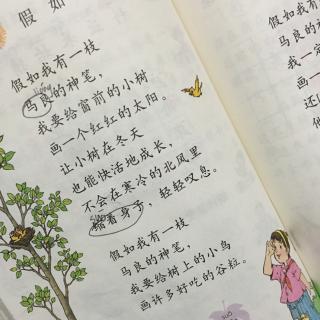 假如
假如我有一枝
马良的神笔，
我要给窗前的小树
画一个红红的太阳。
让小树在冬天
也能快活地成长，
不会在寒冷的北风里
缩着身子，轻轻叹息。
假如我有一枝
马良的神笔，
我要给树上的小鸟
画许多好吃的谷粒。
假如
马良
我一
画
还